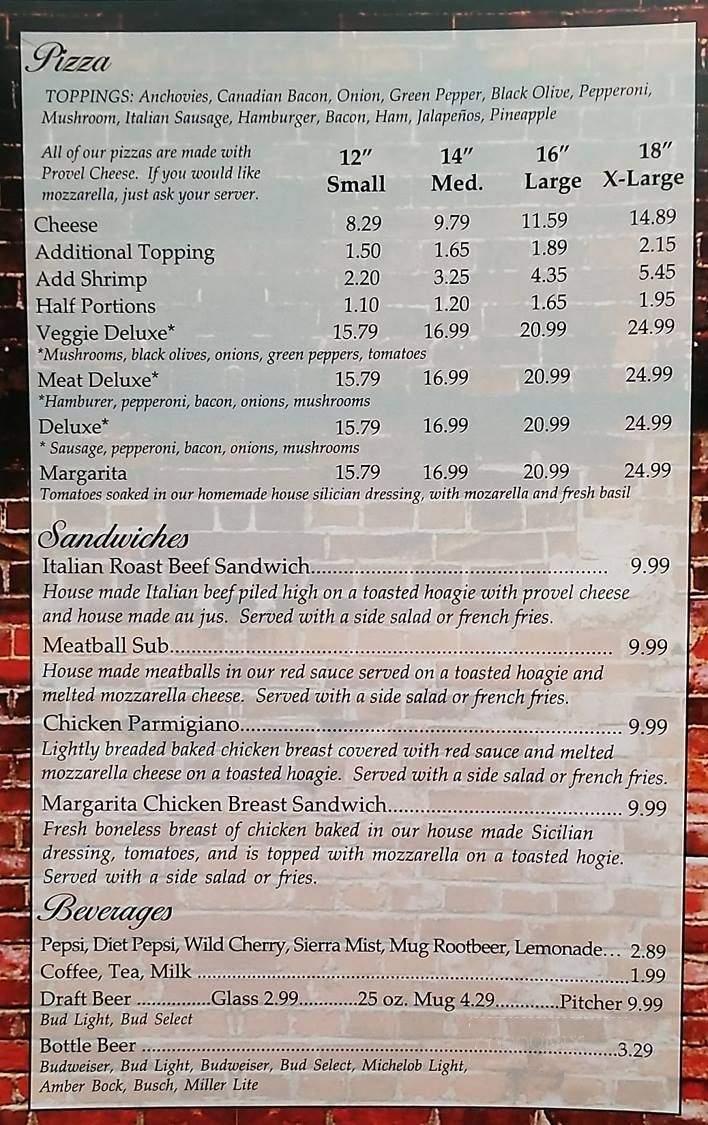 Pizza
TOPPINGS: Anchovies, Canadian Bacon, Onion, Green Pepper, Black Olive, Pepperoni,
Mushroom, Italian Sausage, Hamburger, Bacon, Ham, Jalapeños, Pineapple
All of our pizzas are made with
Provel Cheese. If you would like
mozzarella, just ask your server.
12" 14" 16" 18"
Small Med. Large X-Large
Cheese 8.29 9.79 11.59 14.89
Additional Topping 1.50 1.65 1.89 2.15
Add Shrimp 2.20 3.25 4.35 5.45
Half Portions 1.10 1.20 1.65 1.95
Veggie Deluxe* 15.79 16.99 20.99 24.99
*Mushrooms, black olives, onions, green peppers, tomatoes
Meat Deluxe* 15.79 16.99 20.99 24.99
*Hamburer, pepperoni, bacon, onions, mushrooms
Deluxe* 15.79 16.99 20.99 24.99
* Sausage, pepperoni, bacon, onions, mushrooms
Margarita 15.79 16.99 20.99 24.99
Tomatoes soaked in our homemade house silician dressing, with mozarella and fresh basil
Sandwiches
Italian Roast Beef Sandwich................................................ 9.99
House made Italian beef piled high on a toasted hoagie with provel cheese
and house made au jus. Served with a side salad or french fries.
Meatball Sub....................................................................... 9.99
House made meatballs in our red sauce served on a toasted hoagie and
melted mozzarella cheese. Served with a side salad or french fries.
Chicken Parmigiano............................................................. 9.99
Lightly breaded baked chicken breast covered with red sauce and melted
mozzarella cheese on a toasted hoagie. Served with a side salad or french fries.
Margarita Chicken Breast Sandwich...................................... 9.99
Fresh boneless breast of chicken baked in our house made Sicilian
dressing, tomatoes, and is topped with mozzarella on a toasted hogie.
Served with a side salad or fries.
Beverages
Pepsi, Diet Pepsi, Wild Cherry, Sierra Mist, Mug Rootbeer, Lemonade... 2.89
Coffee, Tea, Milk .....................................................................1.99
Draft Beer ..............Glass 2.99...........25 oz. Mug 4.29............Pitcher 9.99
Bud Light, Bud Select
Bottle Beer ..............................................................................3.29
Budweiser, Bud Light, Budweiser, Bud Select, Michelob Light,
Amber Bock, Busch, Miller Lite